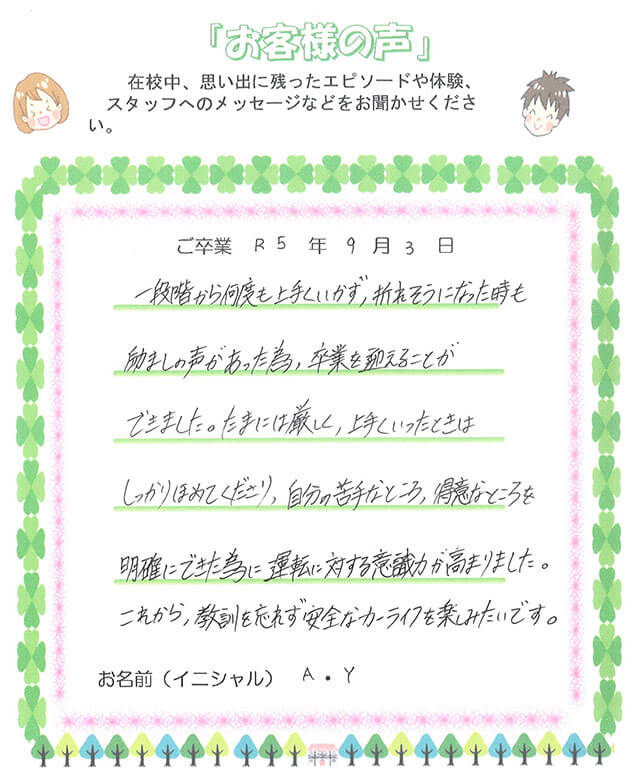 「お客様の声」
在校中、思い出に残ったエピソードや体験、
スタッフへのメッセージなどをお聞かせくださ
い。
ご卒業 R5 年 9 月 3 日
一段階から何度も上手くいかず,折れそうになった時も
励ましの声があった為,卒業を迎えることが
できました。たまには厳しく,上手くいったときは
しっかりほめてくださり,自分の苦手なところ,得意なところを
明確にできた為に運転に対する意識力が高まりました。
これから,教訓を忘れず安全なカーライフを楽しみたいです。
お名前（イニシャル） A・Y